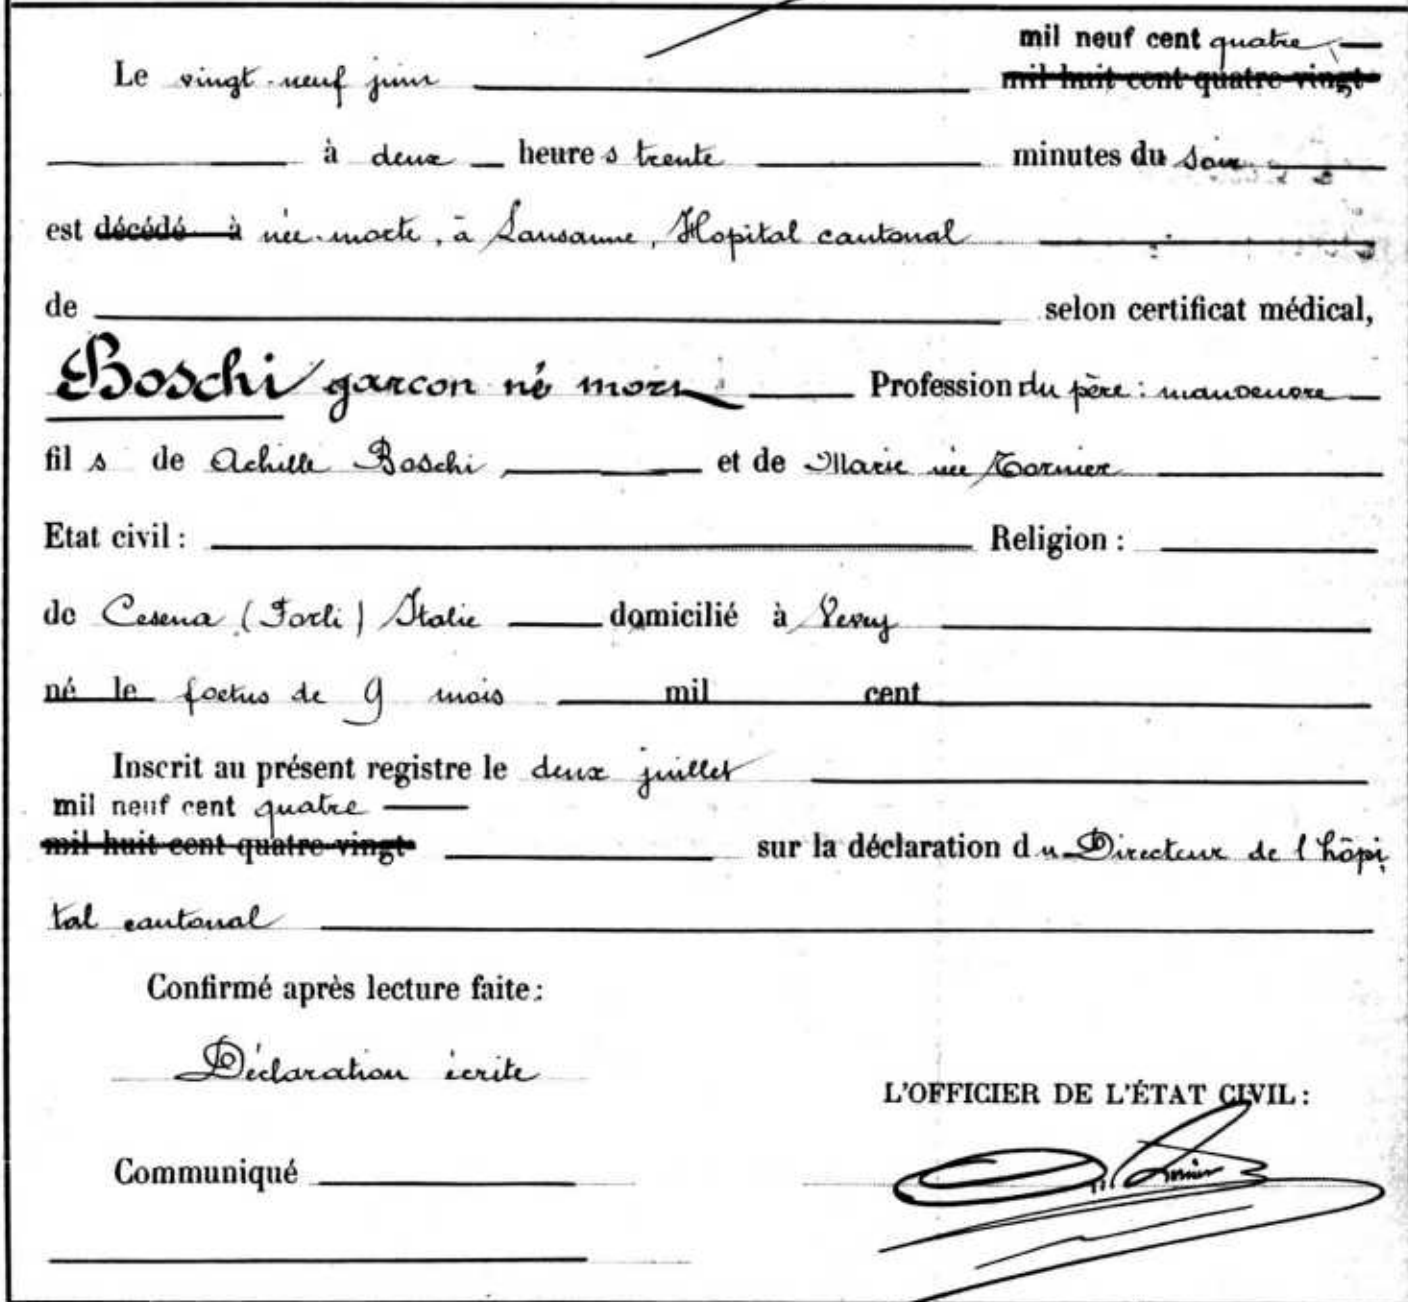 mil neuf cent quatre
Le vingt-neuf juin mil huit cent quatre-vingt
à deux heures trente minutes du soir
est décédé à née-morte, à Lausanne, Hopital cantonal
de selon certificat médical,
Boschi garcon né mort Profession du père: manoeuvre
fils de Achille Boschi et de Marie née Tornier
Etat civil: Religion:
de Cesena (Forli) Italie domicilié à Vevey
né le foetus de 9 mois mil cent
Inscrit au présent registre le deux juillet
mil neuf cent quatre
mil huit cent quatre-vingt sur la déclaration du Directeur de l'hôpi
tal cantonal
Confirmé après lecture faite:
Déclaration écrite
L'OFFICIER DE L'ÉTAT CIVIL:
Communiqué